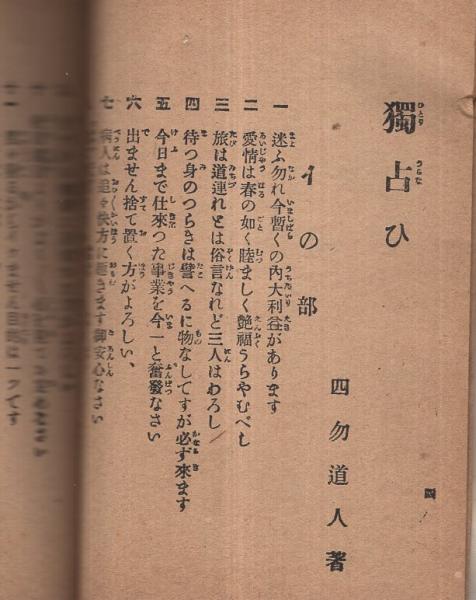 獨占ひ
四勿道人著
イの部
一 迷ふ勿れ今暫くの內大利益があります
二 愛情は春の如く睦ましく艶福うらやむべし
三 旅は道連れとは俗言なれど三人はわろし
四 待つ身のつらきは譬へるに物なしですが必ず來ます
五 今日まで仕來つた事業を今一と奮發なさい
六 出ません捨て置く方がよろしい、
七 病人は追々快方に趣きます御安心なさい
四